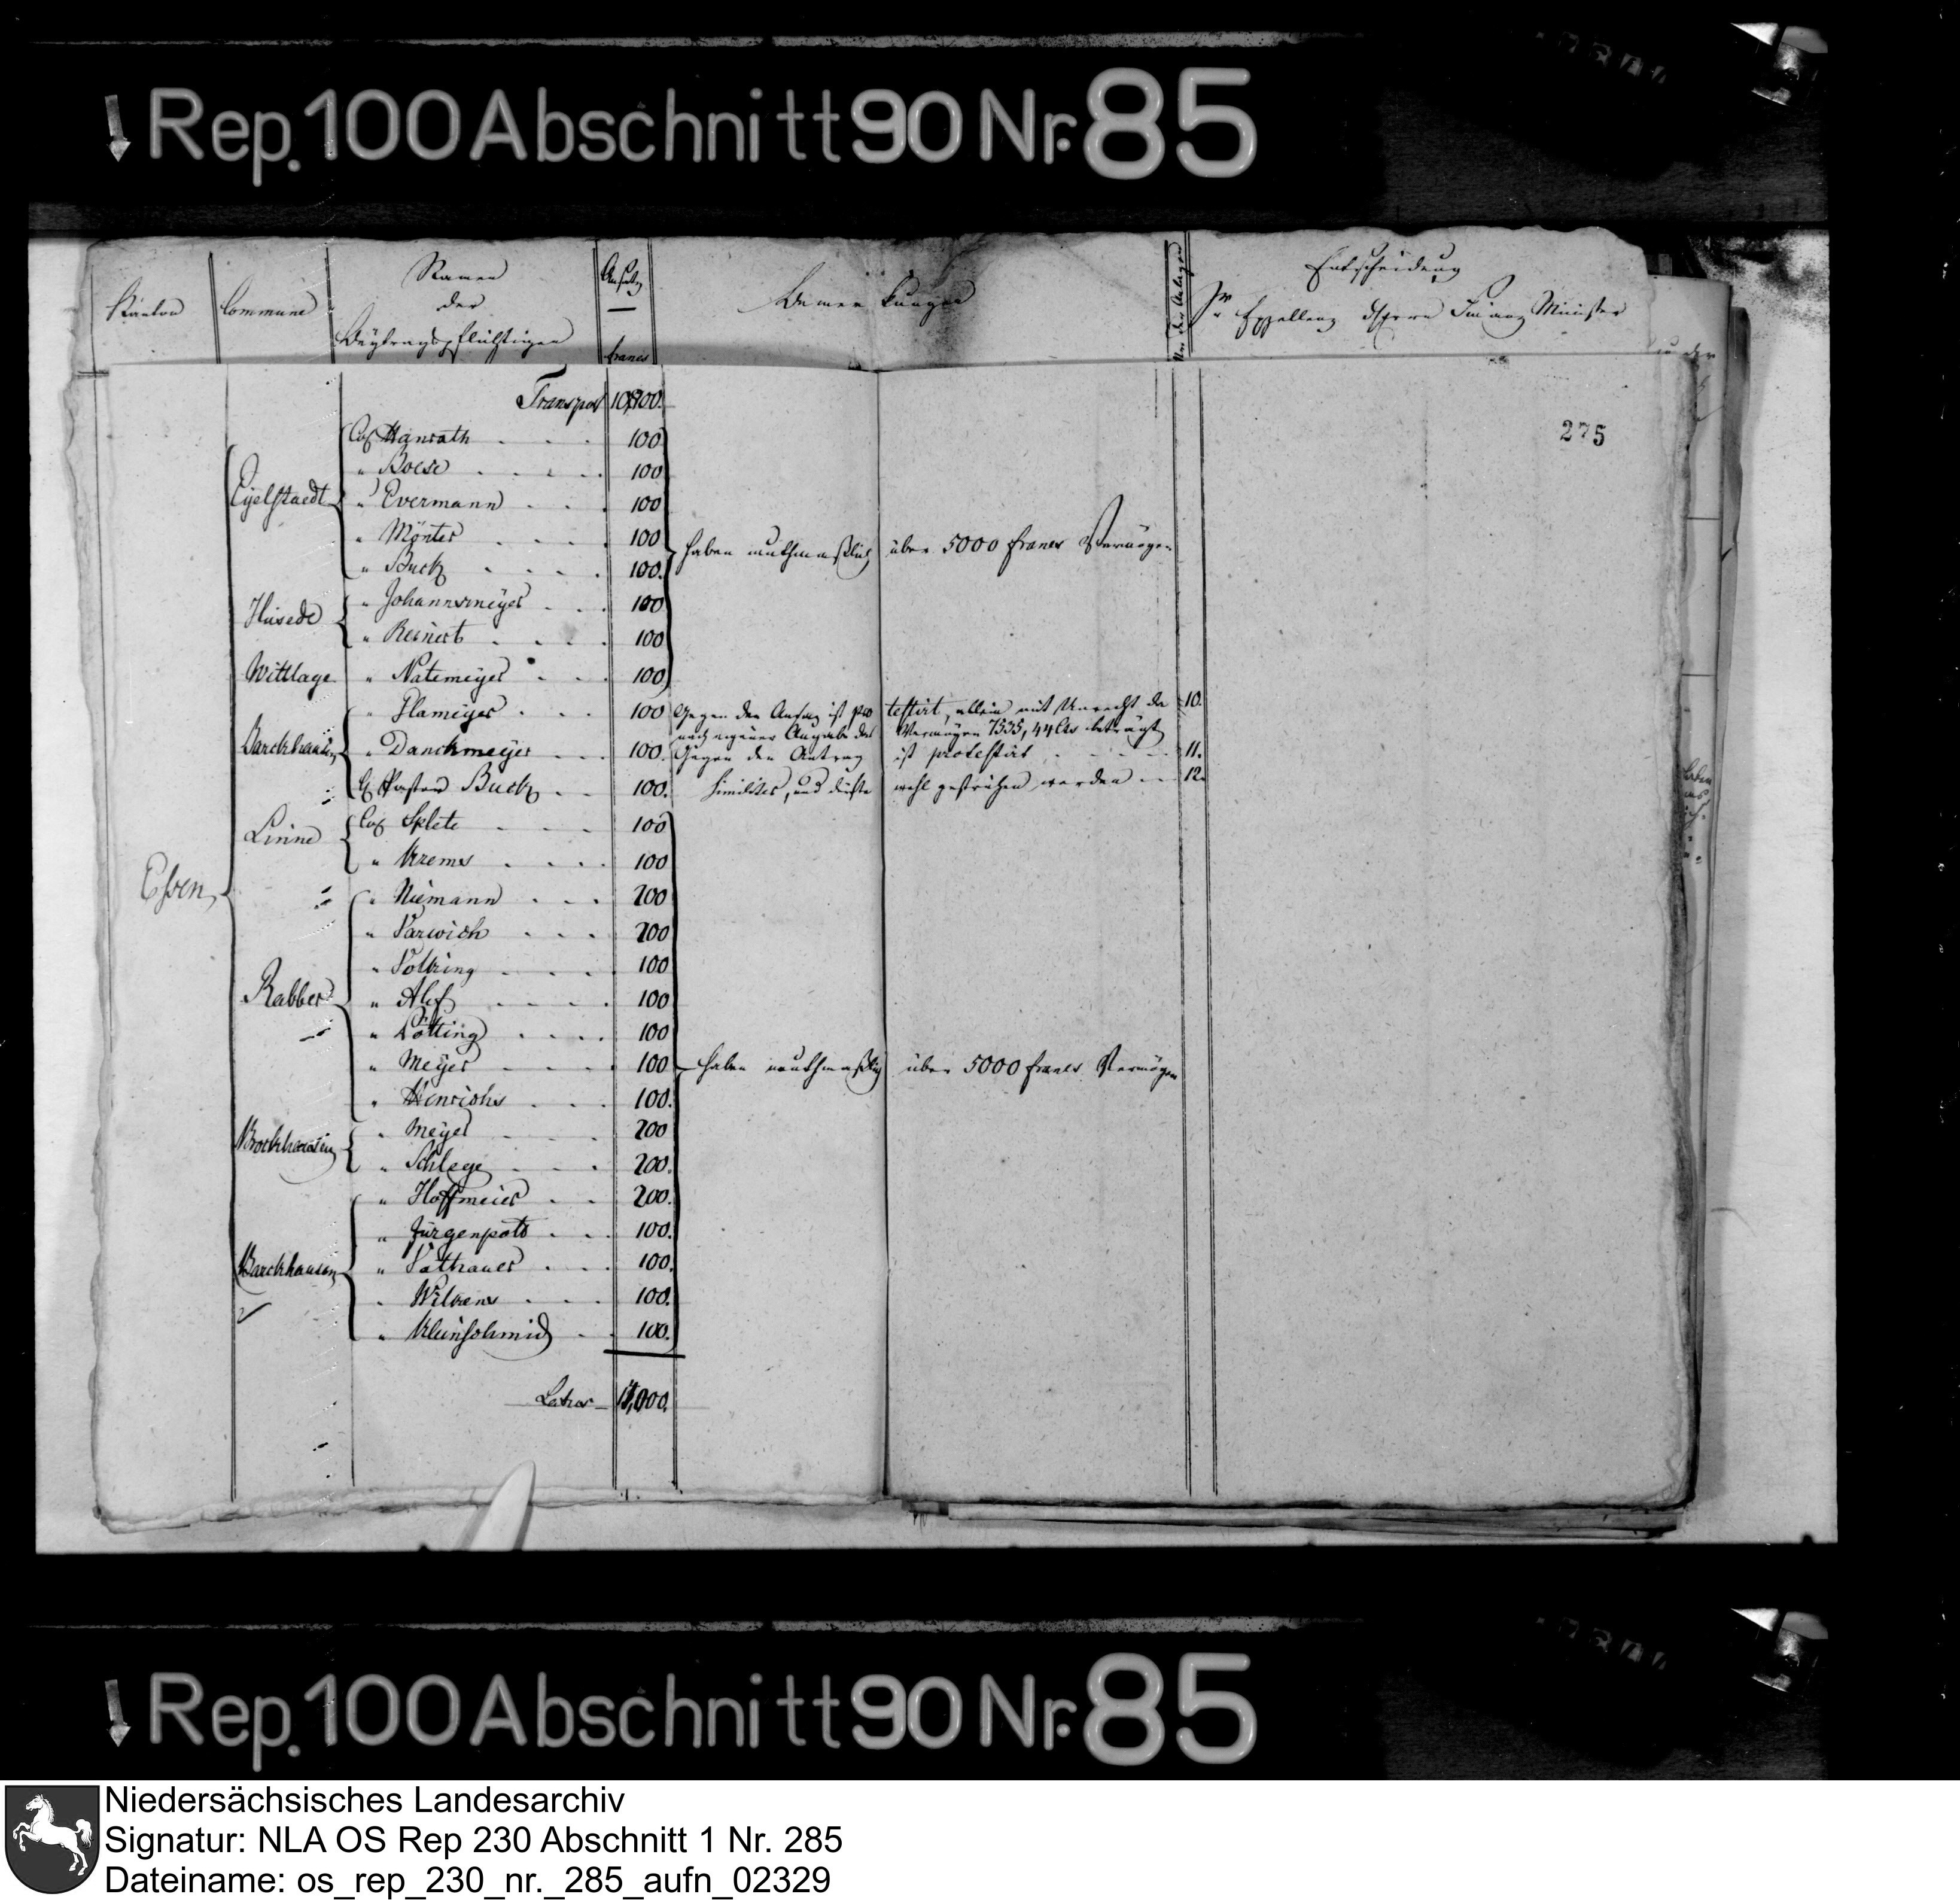 Rep. 100 Abschnitt 90 Nr. 85
Kanton Commune Namen der Beytragspflichtigen Ansatz francs Bemerkungen Nro der Anlagen Entscheidung Sr Exzellenz des Herrn Finanz Minister
Transport 10,900.
275
Essen
Eyelstaedt
Col. Hanrath 100
" Boese 100
" Evermann 100
" Mönter 100
" Buck 100.
haben muthmaßlich über 5000 francs Vermögen
Hüsede
" Johannsmeyer 100
" Reinert 100
Wittlage " Natemeyer 100
Barckhausen
" Flameyer 100 Gegen den Ansatz ist protestirt, allein mit Unrecht da 10.
nach eigener Angabe das Vermögen 7535, 44 Cts beträgt
" Danckmeyer 100. Gegen den Antrag ist protestirt 11.
Pastor Buck 100. similiter, und dürfte wohl gestrichen werden 12.
Linne
Col. Splete 100
" Krems 100
Rabber
" Niemann 200
" Varwich 200
" Volking 100
" Alef 100
" Lötting 100
" Meyer 100
haben muthmaßlich über 5000 francs Vermögen
" Hinrichs 100.
Brockhausen
" Meyer 200
" Schlege 200.
Barckhausen
" Hoffmeier 200.
" Jürgenpott 100.
" Vathauer 100.
" Wilkens 100.
" Kleinschmid 100.
Latus 14,000.
Rep. 100 Abschnitt 90 Nr. 85
Niedersächsisches Landesarchiv
Signatur: NLA OS Rep 230 Abschnitt 1 Nr. 285
Dateiname: os_rep_230_nr._285_aufn_02329